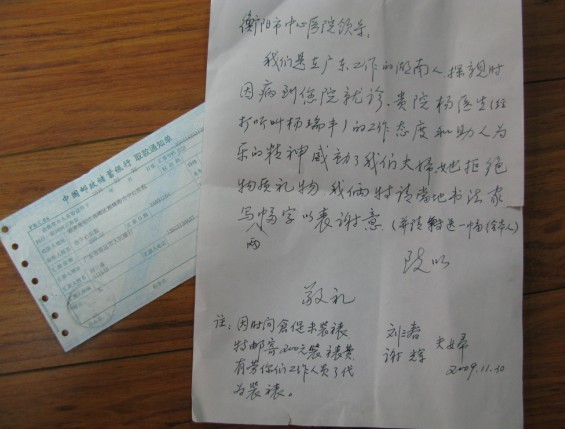 衡阳市中心医院领导:
我们是在广东工作的湖南人,探视时
因病到您院就诊。贵院杨医生(经
打听叫杨瑞丰)的工作态度和助人为
乐的精神感动了我们夫妇,她拒绝
物质礼物,我俩特请当地书法家
写两幅字以表谢意(并请转送一幅给本人)
致以
敬礼
注:因时间仓促未装裱
特邮寄200元装裱费
有劳你们工作人员了代
为装裱。
刘三春
谢辉 夫妇
2009.11.30
中国邮政储蓄银行 取款通知单